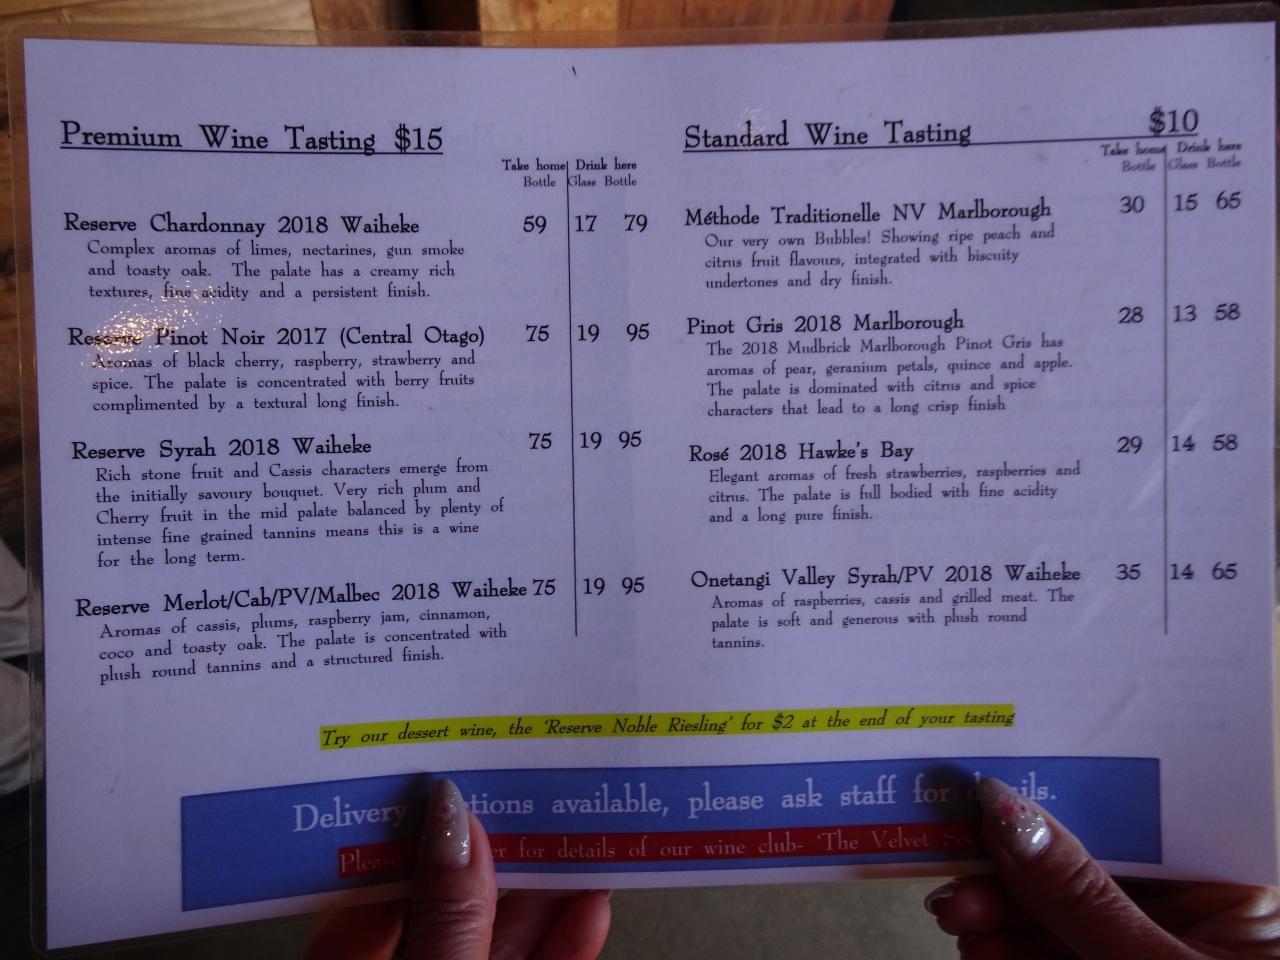 Premium Wine Tasting $15
Take home Drink here
Bottle Glass Bottle
Reserve Chardonnay 2018 Waiheke 59 17 79
Complex aromas of limes, nectarines, gun smoke
and toasty oak. The palate has a creamy rich
textures, fine acidity and a persistent finish.
Reserve Pinot Noir 2017 (Central Otago) 75 19 95
Aromas of black cherry, raspberry, strawberry and
spice. The palate is concentrated with berry fruits
complimented by a textural long finish.
Reserve Syrah 2018 Waiheke 75 19 95
Rich stone fruit and Cassis characters emerge from
the initially savoury bouquet. Very rich plum and
Cherry fruit in the mid palate balanced by plenty of
intense fine grained tannins means this is a wine
for the long term.
Reserve Merlot/Cab/PV/Malbec 2018 Waiheke 75 19 95
Aromas of cassis, plums, raspberry jam, cinnamon,
coco and toasty oak. The palate is concentrated with
plush round tannins and a structured finish.
Standard Wine Tasting $10
Take home Drink here
Bottle Glass Bottle
Méthode Traditionelle NV Marlborough 30 15 65
Our very own Bubbles! Showing ripe peach and
citrus fruit flavours, integrated with biscuity
undertones and dry finish.
Pinot Gris 2018 Marlborough 28 13 58
The 2018 Mudbrick Marlborough Pinot Gris has
aromas of pear, geranium petals, quince and apple.
The palate is dominated with citrus and spice
characters that lead to a long crisp finish
Rosé 2018 Hawke's Bay 29 14 58
Elegant aromas of fresh strawberries, raspberries and
citrus. The palate is full bodied with fine acidity
and a long pure finish.
Onetangi Valley Syrah/PV 2018 Waiheke 35 14 65
Aromas of raspberries, cassis and grilled meat. The
palate is soft and generous with plush round
tannins.
Try our dessert wine, the 'Reserve Noble Riesling' for $2 at the end of your tasting
Delivery available, please ask staff for
for details of our wine club- 'The Velvet